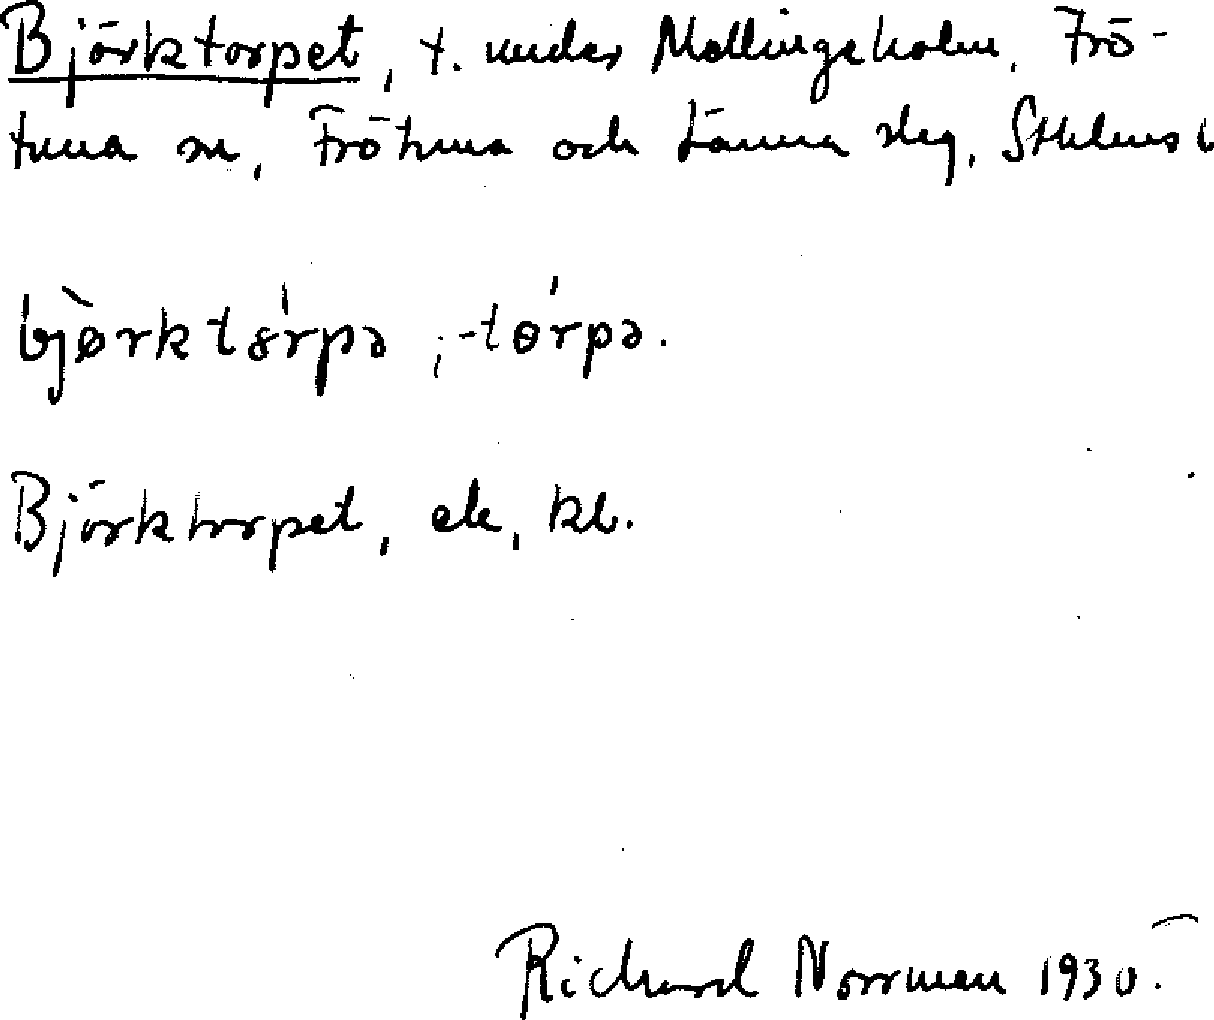 Björktorpet, t. under Mallingeholm, Frö-
tuna sn, Frötuna och Länna slg, Sthlms l
bjø̀rktɵ́rpə, -tɵ́rpə.
Björktorpet, ek, kb.
Richard Norrman 1930.